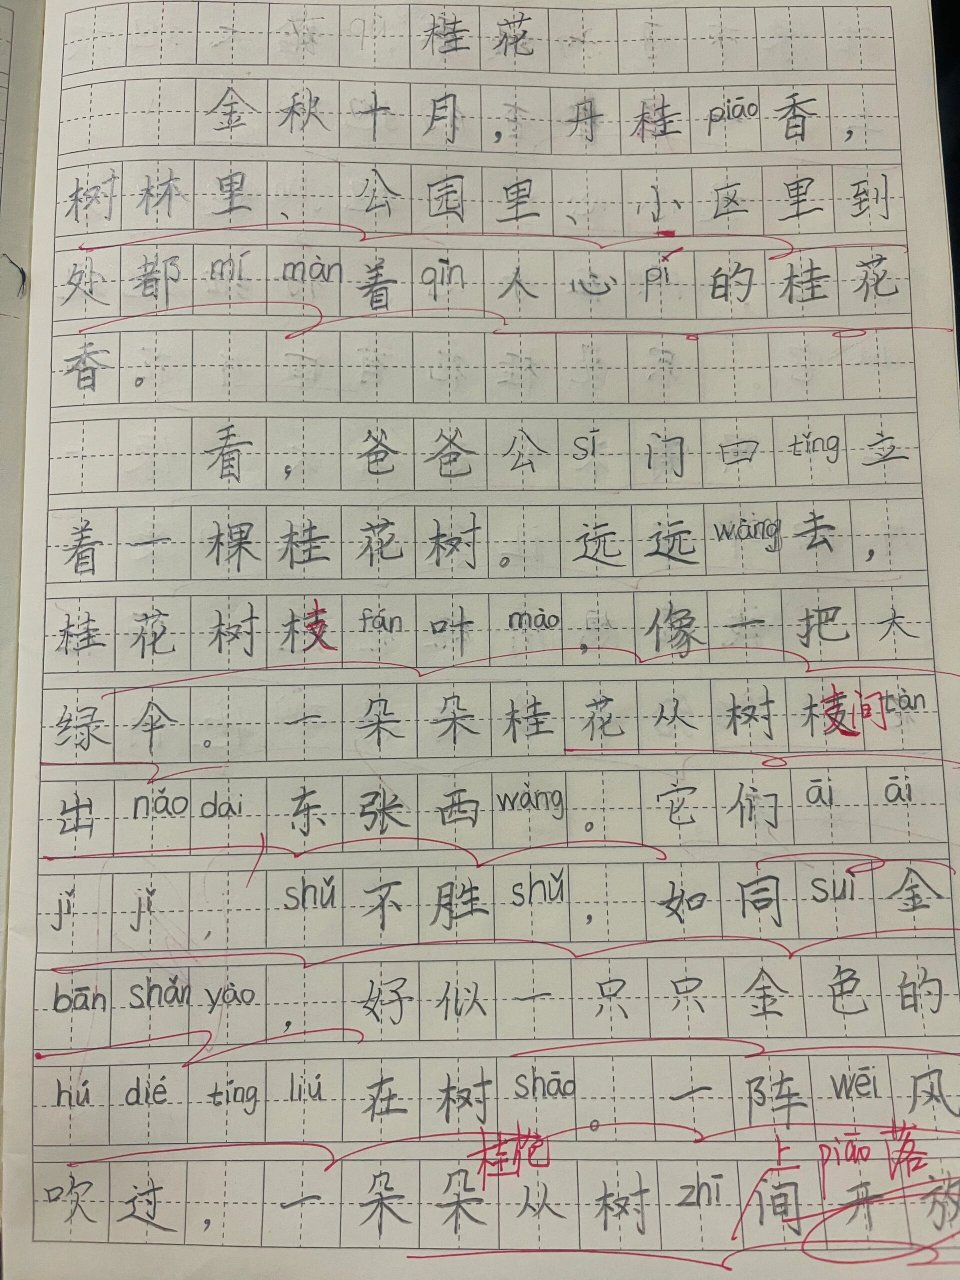 桂花
金秋十月，丹桂piāo香，
树林里、公园里、小区里到
处都mí màn着qīn人心pí的桂花
香。
看，爸爸公sī门口tíng立
着一棵桂花树。远远wàng去，
桂花树枝fán叶mào，像一把大
绿伞。一朵朵桂花从树枝间tàn
出nǎo dai东张西wàng。它们āi āi
jǐ jǐ，shǔ不胜shǔ，如同suì金
bān shǎn yào，好似一只只金色的
hú dié tíng liú在树shāo。一阵wēi风
桂花 上 piāo落
吹过，一朵朵从树zhī间开放